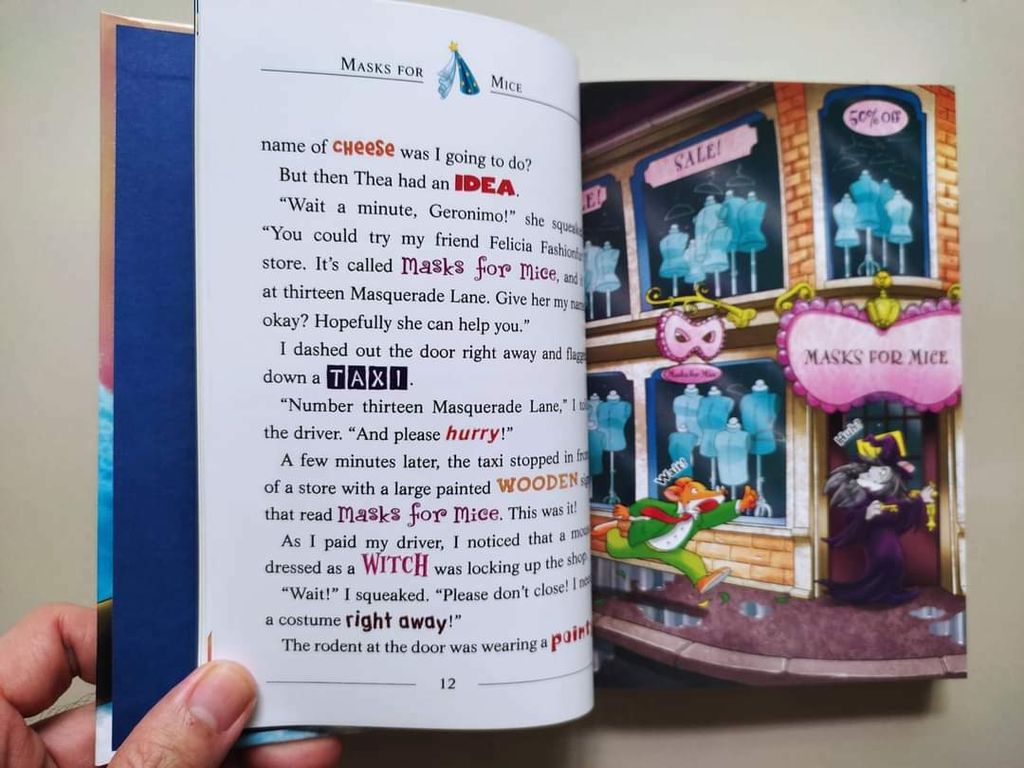 MASKS FOR MICE
name of CHEESE was I going to do?
But then Thea had an IDEA.
“Wait a minute, Geronimo!” she
“You could try my friend Felicia
store. It’s called Masks for Mice, and
at thirteen Masquerade Lane. Give her my
okay? Hopefully she can help you.”
I dashed out the door right away and
down a TAXI.
“Number thirteen Masquerade Lane,” I
the driver. “And please hurry!”
A few minutes later, the taxi stopped in
of a store with a large painted WOODEN
that read Masks for Mice. This was it!
As I paid my driver, I noticed that a
dressed as a WITCH was locking up the shop.
“Wait!” I squeaked. “Please don’t close! I
a costume right away!”
The rodent at the door was wearing a
12
SALE!
50% OFF
Masks for Mice
MASKS FOR MICE
Huh?
Wait!